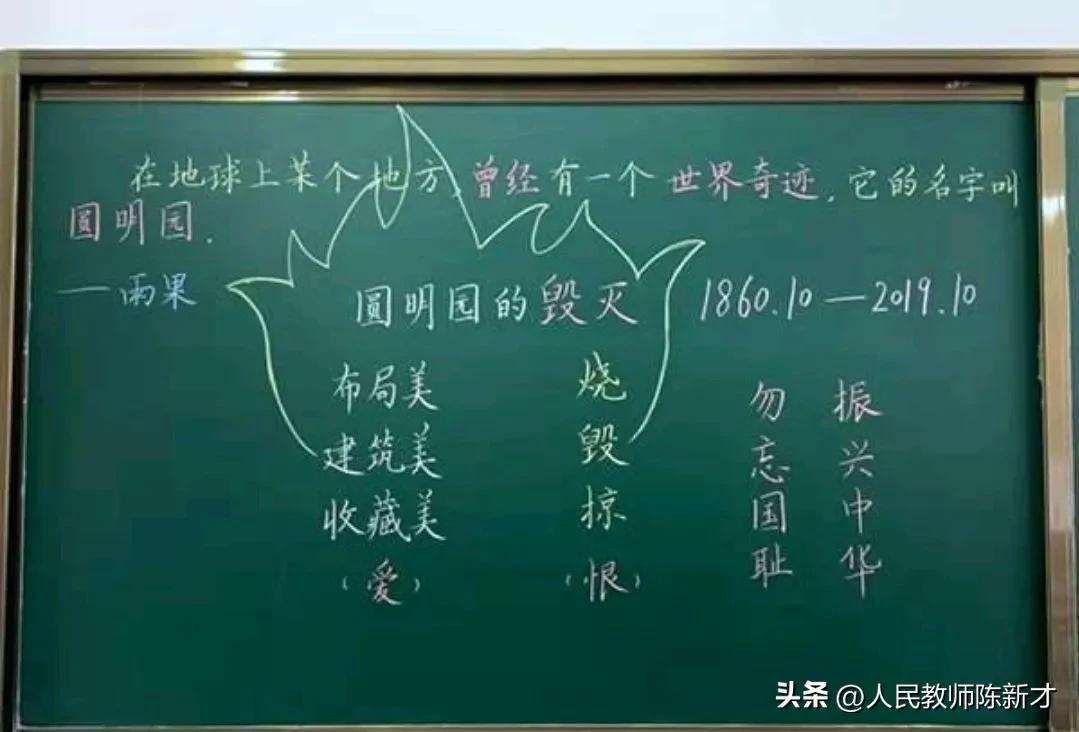 在地球上某个地方,曾经有一个世界奇迹,它的名字叫
圆明园.
——雨果
圆明园的毁灭
1860.10—2019.10
布局美
建筑美
收藏美
(爱)
烧
毁
掠
(恨)
勿忘国耻
振兴中华
头条 @人民教师陈新才